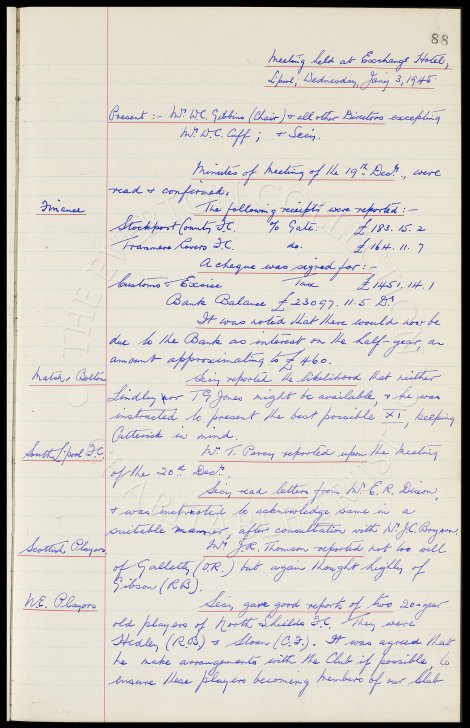 88
Meeting held at Exchange Hotel,
L'pool, Wednesday, Jan'y 3, 1945
Present :- Mr W.C. Gibbins (Chair) & all other Directors excepting
Mr W.C. Cuff ; & Secy.
Minutes of Meeting of the 19th Decr., were
read & confirmed.
Finance
The following receipts were reported :-
Stockport County F.C. % Gate. £183. 15. 2
Tranmere Rovers F.C. do. £164. 11. 7
A cheque was signed for :-
Customs & Excise Tax £1451. 14. 1
Bank Balance £23097. 11. 5 Dr
It was noted that there would now be
due to the Bank as interest on the half-year, an
amount approximating to £460.
Match v Bolton
Secy reported the likelihood that neither
Lindley nor T.G. Jones might be available, & he was
instructed to present the best possible XI, keeping
Catterick in mind.
South L'pool F.C.
Mr T. Percy reported upon the Meeting
of the 20th Decr.
Secy read letters from Mr E.R. Dixon,
& was instructed to acknowledge same in a
suitable manner, after consultation with Mr J.C. Bryson.
Scottish Players
Mr J.R. Thomson reported not too well
of Galletly (O.R.) but again thought highly of
Gibson (R.B.)
N.E. Players
Secy gave good reports of two 20-year
old players of North Shields F.C. They were
Hedley (R.B) & Sloan (C.F.). It was agreed that
he make arrangements with the Club if possible, to
ensure these players becoming members of our Club
THE EVERTON COLLECTION
CHARITABLE TRUST